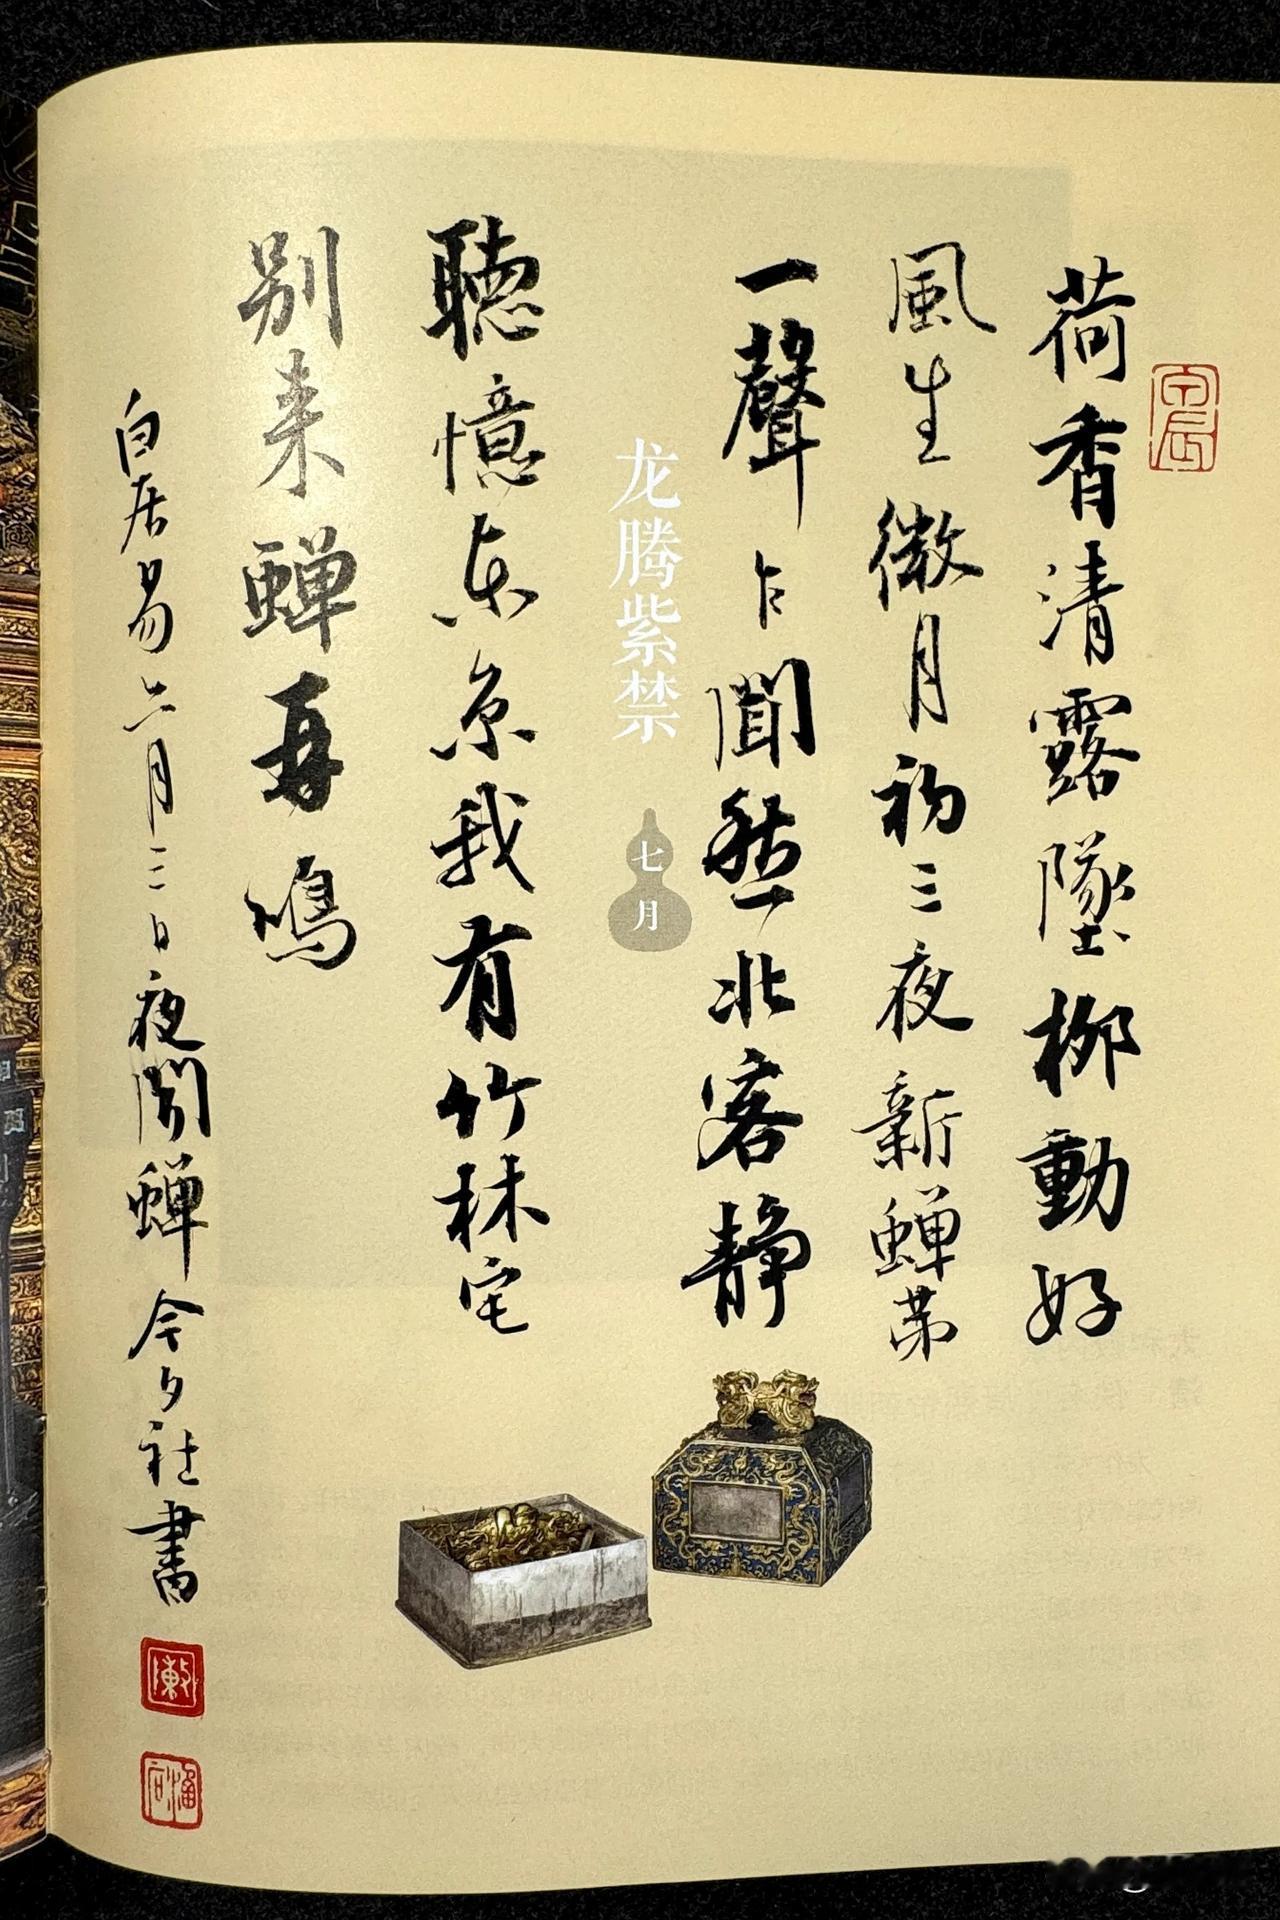 荷香清露墜柳動好
風生微月初三夜新蟬第
一聲乍聞愁北客靜
龙腾紫禁
七月
聽憶东京我有竹林宅
别来蟬再鳴
白居易六月三日夜聞蟬今夕社書